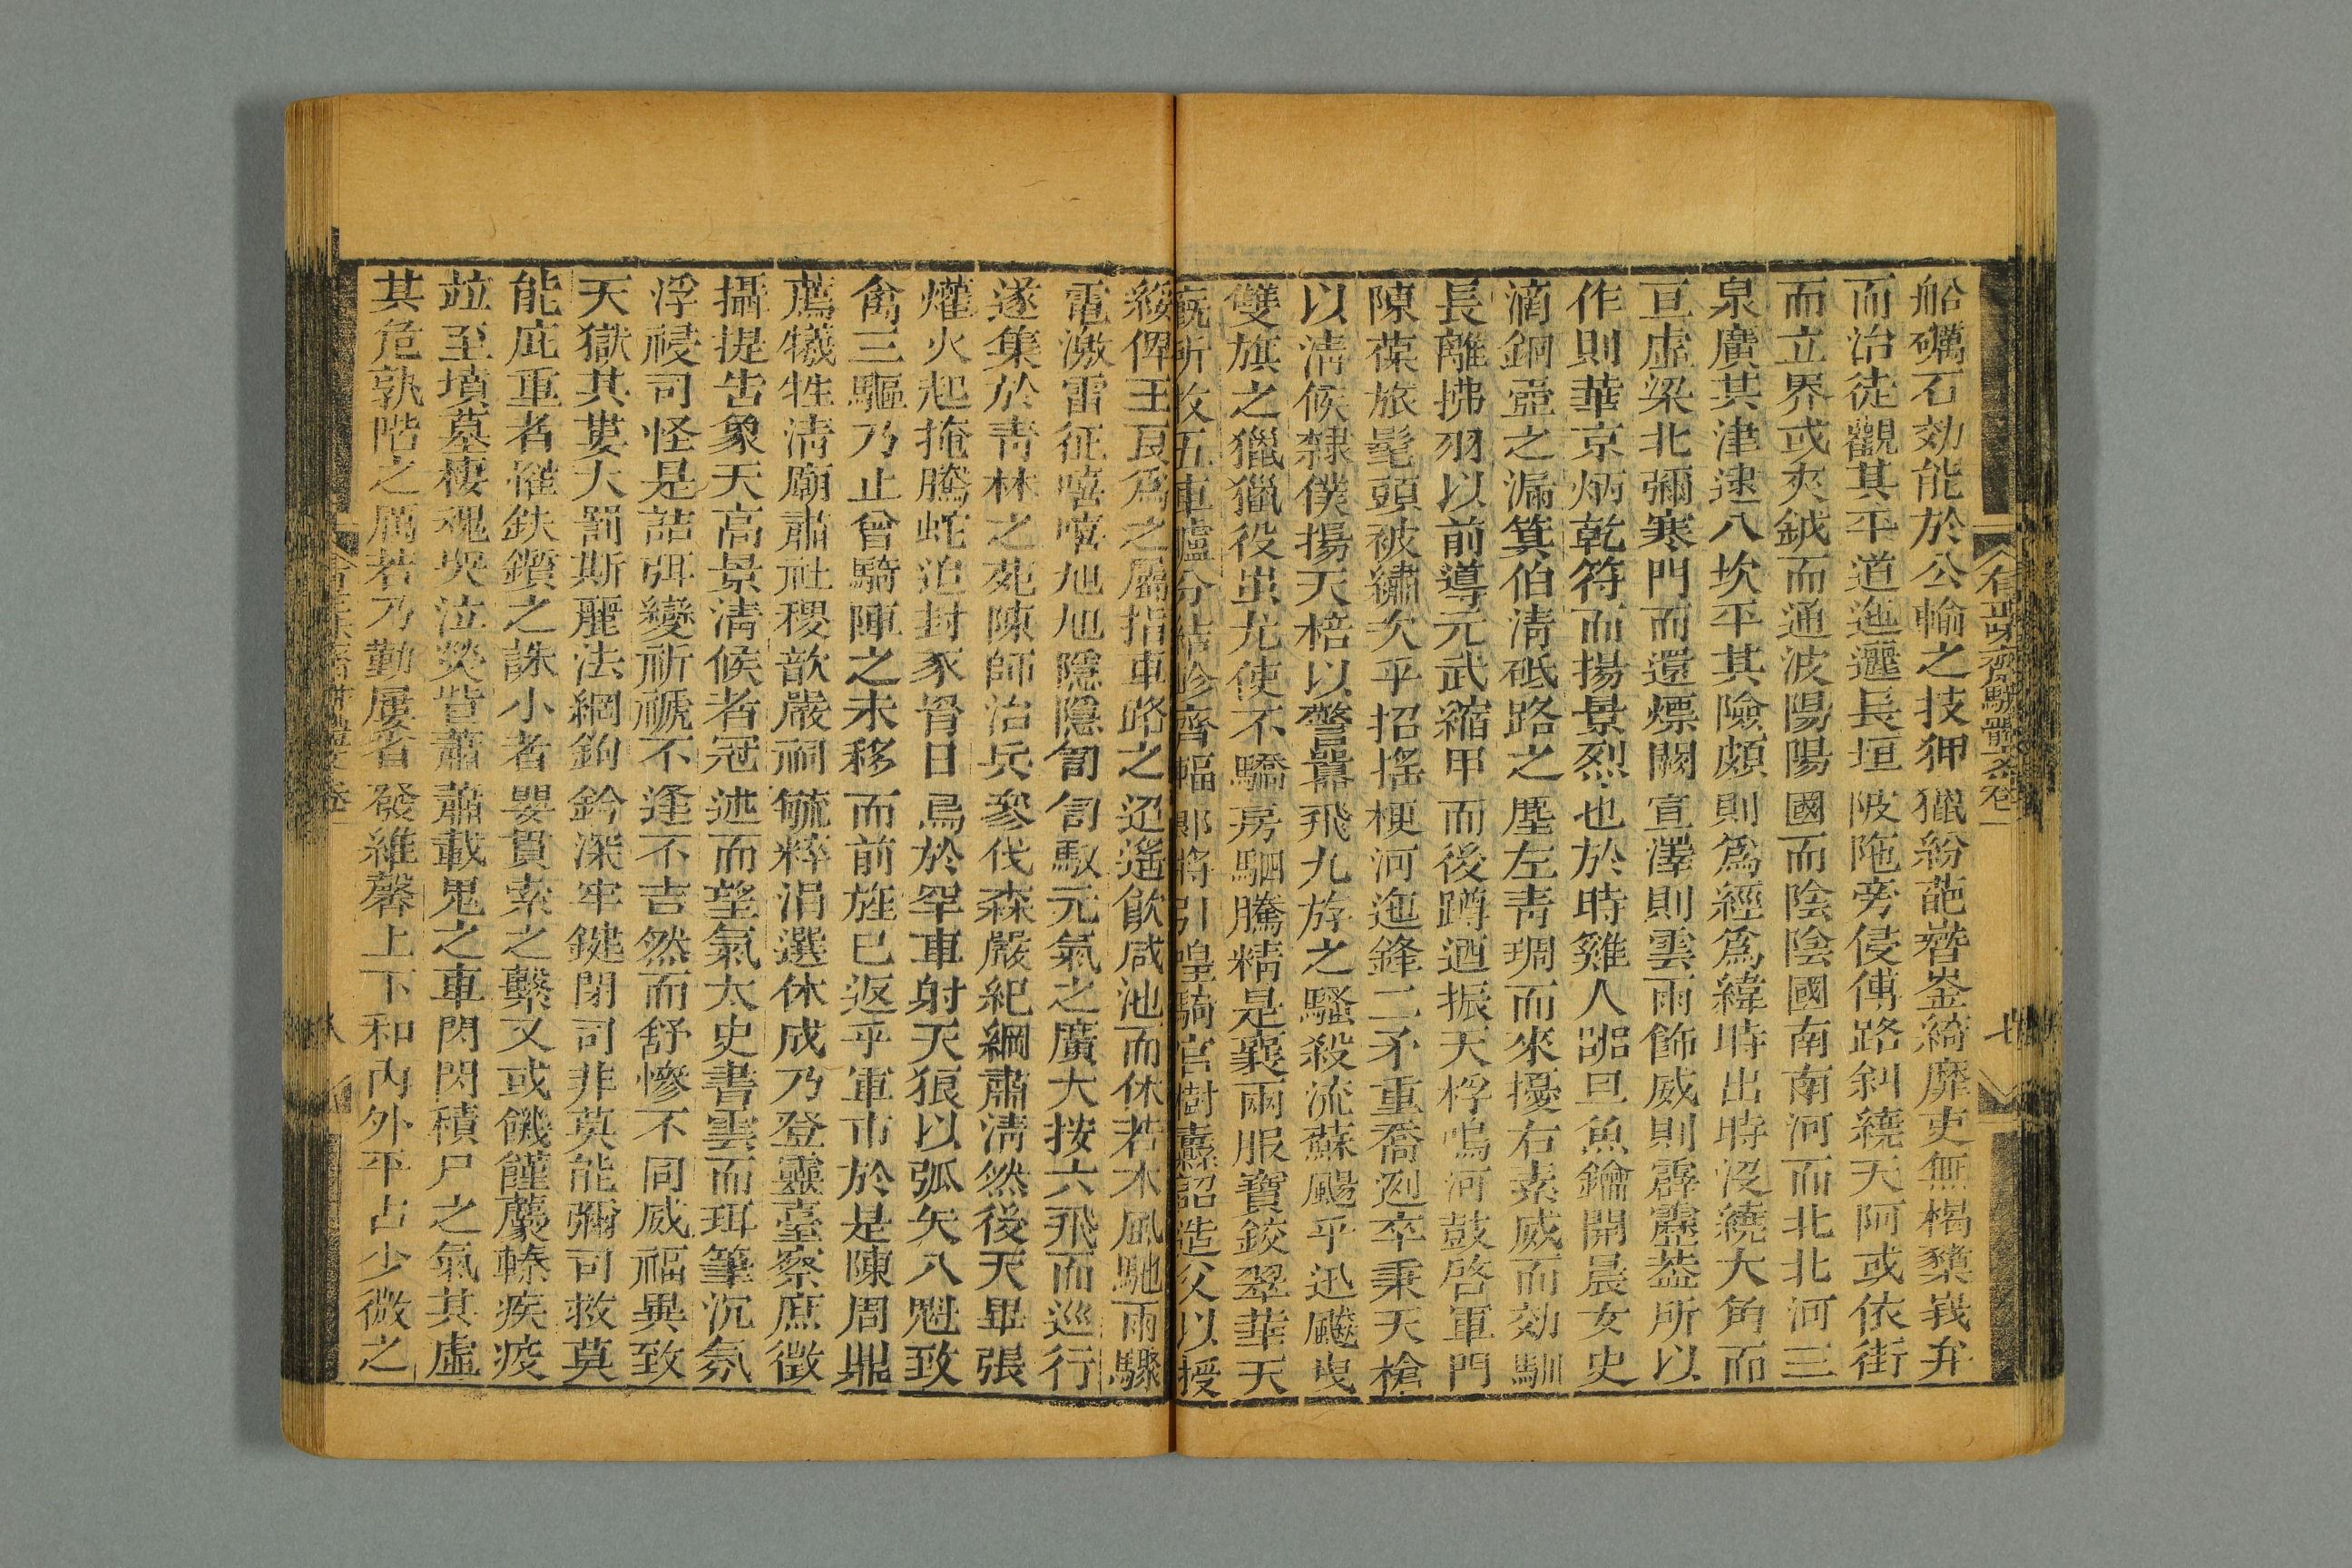 有正味齋駢體文卷一
七
船礪石効能於公輸之技狎獵紛葩巒崟綺靡吏無楬櫫峩弁
而治徒觀其平道迤邐長垣陂陁旁侵傅路糾繞天阿或依街
而立界或夾鉞而通波陽陽國而陰陰國南南河而北北河三
泉廣其津逮八坎平其險頗則爲經爲緯時出時沒繞大角而
亘虛梁北彌寒門而還熛闕宣澤則雲雨飾威則霹靂葢所以
作則華京炳乾符而揚景烈也於時雞人嘂旦魚鑰開晨女史
滴銅壺之漏箕伯淸砥路之塵左青琱而來擾右素威而効馴
長離拂羽以前導元武縮甲而後蹲迺振天桴鳴河鼓啓軍門
陳葆旅髦頭被繡矢乎招搖梗河迤鋒二矛重喬迾卒秉天槍
以淸候隸僕揚天棓以警囂飛九斿之騷殺流蘇颺乎迅飈曳
雙旗之獵獵役蚩尤使不驕房駟騰精是襄兩服寶鉸翠華天
廐所牧五車廬分結軫齊幅郎將引喤騎官樹纛詔造父以授
綏俾王良爲之屬指車路之迢遙飮咸池而休若木風馳雨驟
電激雷征嘻嘻旭旭隱隱訇訇馭元氣之廣大按六飛而巡行
遂集於靑林之苑陳師治兵參伐森嚴紀綱肅淸然後天畢張
爟火起掩騰蛇迫封豕胃日烏於罕車射天狼以弧矢八魁致
禽三驅乃止曾騎陣之未移而前旌已返乎軍市於是陳周鼎
薦犧牲淸廟肅社稷歆嚴祠毓粹涓選休成乃登靈臺察庶徵
攝提告象天高景淸候者冠述而望氣太史書雲而珥筆沉氛
浮祲司怪是詰弭變祈禠不逢不吉然而舒慘不同威福異致
天獄其婁大罰斯麗法網鉤鈐深牢鍵閉司非莫能彌司救莫
能庇重者罹鈇鑕之誅小者嬰貫索之繫又或饑饉薦臻疾疫
竝至墳墓棲魂哭泣熒眥蕭蕭載鬼之車閃閃積尸之氣其虛
其危孰階之厲若乃勤屢省發維馨上下和內外平占少微之
八